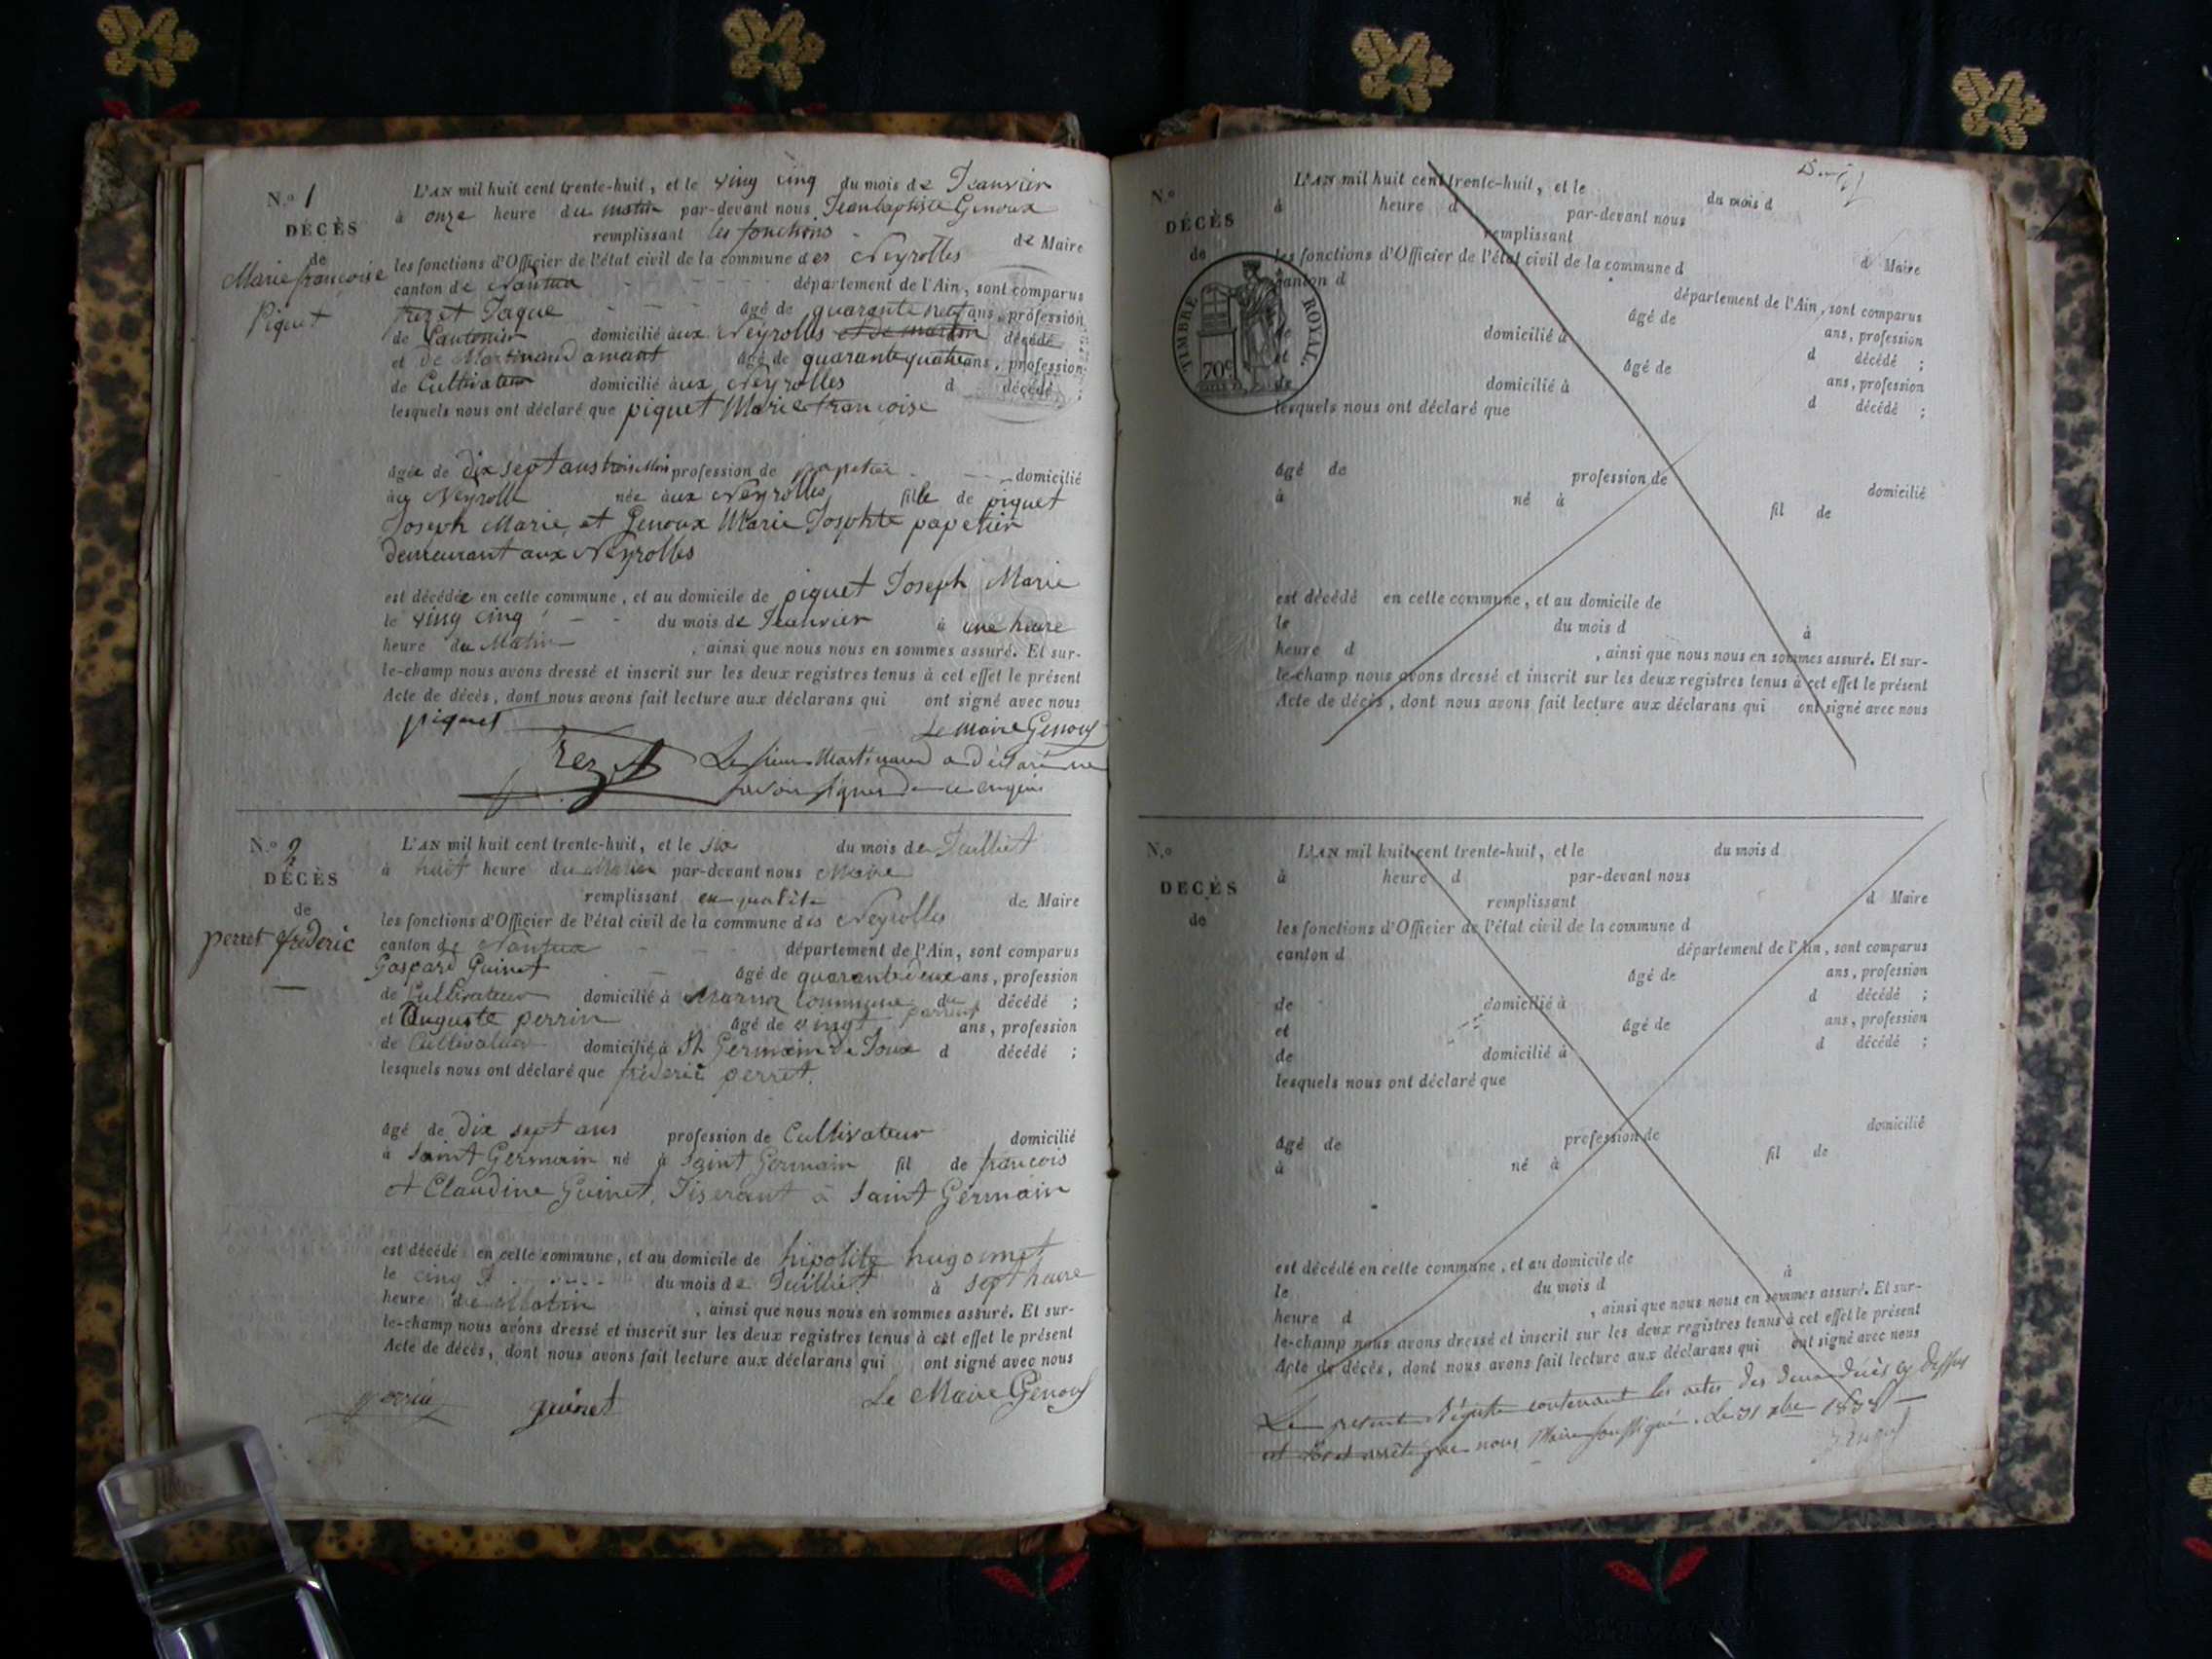 N.o 1
DÉCÈS
de
Marie françoise
Piquet
L'AN mil huit cent trente-huit, et le ving cinq du mois de Jeanvier
à onze heure du matin par-devant nous Jeanbaptiste Genoux
remplissant les fonctions de Maire
les fonctions d'Officier de l'état civil de la commune des Neyrolles
canton de Nantua département de l'Ain, sont comparus
frezet Jaque âgé de quarante neuf ans, profession
de Cantonier domicilié aux Neyrolles décédé
et de Martinand amant âgé de quarante quatre ans, profession
de Cultivateur domicilié aux Neyrolles d décédé ;
lesquels nous ont déclaré que piquet Marie françoise
âgée de dix sept ans trois Mois profession de papetier domicilié
aux Neyrolle née aux Neyrolles fille de piquet
Joseph Marie, et Genoux Marie Josephte papetier
demeurant aux Neyrolles
est décédée en cette commune, et au domicile de piquet Joseph Marie
le ving cinq du mois de Jeanvier à une heure
heure du Matin , ainsi que nous nous en sommes assuré. Et sur-
le-champ nous avons dressé et inscrit sur les deux registres tenus à cet effet le présent
Acte de décès, dont nous avons fait lecture aux déclarans qui ont signé avec nous
piquet Le maire Genoux
Le sieur Martinand a déclaré ne
savoir signer de ce enquis
N.o 2
DÉCÈS
de
perret frederic
L'AN mil huit cent trente-huit, et le six du mois de Juilliet
à huit heure du Matin par-devant nous Maire
remplissant en qualité de Maire
les fonctions d'Officier de l'état civil de la commune des Neyrolles
canton de Nantua département de l'Ain, sont comparus
Gaspard Guinet âgé de quarante deux ans, profession
de Cultivateur domicilié à Commune du décédé ;
et Auguste perrin âgé de vingt ans, profession
de Cultivateur domicilié à St Germain de Joux d décédé ;
lesquels nous ont déclaré que frederic perret.
âgé de dix sept ans profession de Cultivateur domicilié
à Saint Germain né à Saint Germain fil de francois
et Claudine Guinet, Tiserant à Saint Germain
est décédé en cette commune, et au domicile de hipolite hugonnet
le cinq du mois de Juilliet à sept heure
heure du Matin , ainsi que nous nous en sommes assuré. Et sur-
le-champ nous avons dressé et inscrit sur les deux registres tenus à cet effet le présent
Acte de décès, dont nous avons fait lecture aux déclarans qui ont signé avec nous
perrin guinet Le Maire Genoux
N.o
DÉCÈS
de
TIMBRE ROYAL
70c
L'AN mil huit cent trente-huit, et le du mois d
à heure d par-devant nous
remplissant d Maire
les fonctions d'Officier de l'état civil de la commune d
canton d département de l'Ain, sont comparus
âgé de ans, profession
de domicilié à d décédé ;
et âgé de ans, profession
de domicilié à d décédé ;
lesquels nous ont déclaré que
âgé de profession de domicilié
à né à fil de
est décédé en cette commune, et au domicile de
le du mois d à
heure d , ainsi que nous nous en sommes assuré. Et sur-
le-champ nous avons dressé et inscrit sur les deux registres tenus à cet effet le présent
Acte de décès, dont nous avons fait lecture aux déclarans qui ont signé avec nous
N.o
DÉCÈS
de
L'AN mil huit cent trente-huit, et le du mois d
à heure d par-devant nous
remplissant d Maire
les fonctions d'Officier de l'état civil de la commune d
canton d département de l'Ain, sont comparus
âgé de ans, profession
de domicilié à d décédé ;
et âgé de ans, profession
de domicilié à d décédé ;
lesquels nous ont déclaré que
âgé de profession de domicilié
à né à fil de
est décédé en cette commune, et au domicile de
le du mois d à
heure d , ainsi que nous nous en sommes assuré. Et sur-
le-champ nous avons dressé et inscrit sur les deux registres tenus à cet effet le présent
Acte de décès, dont nous avons fait lecture aux déclarans qui ont signé avec nous
Le present Régistre contenant les actes des deux décès cy dessus
est clos et arrêté par nous Maire soussigné. Le 31 xbre 1838